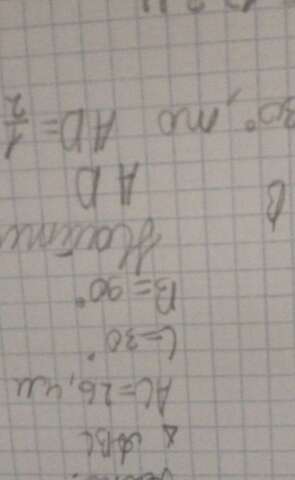 Δ ABC
AC=26,4
C=30°
B=90°
Найти
AD
30°, то AD= 1/2